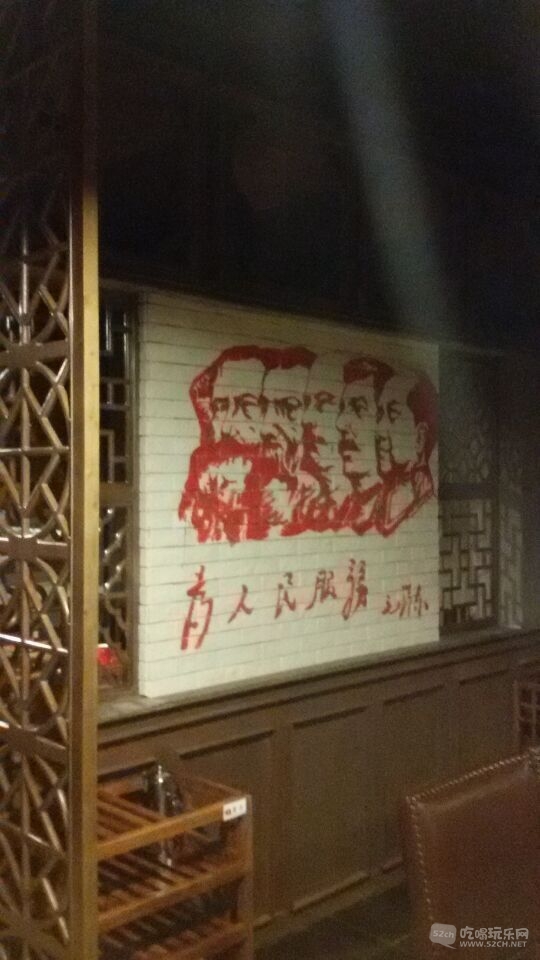 为人民服务 毛泽东
52ch 吃喝玩乐网
WWW.52CH.NET